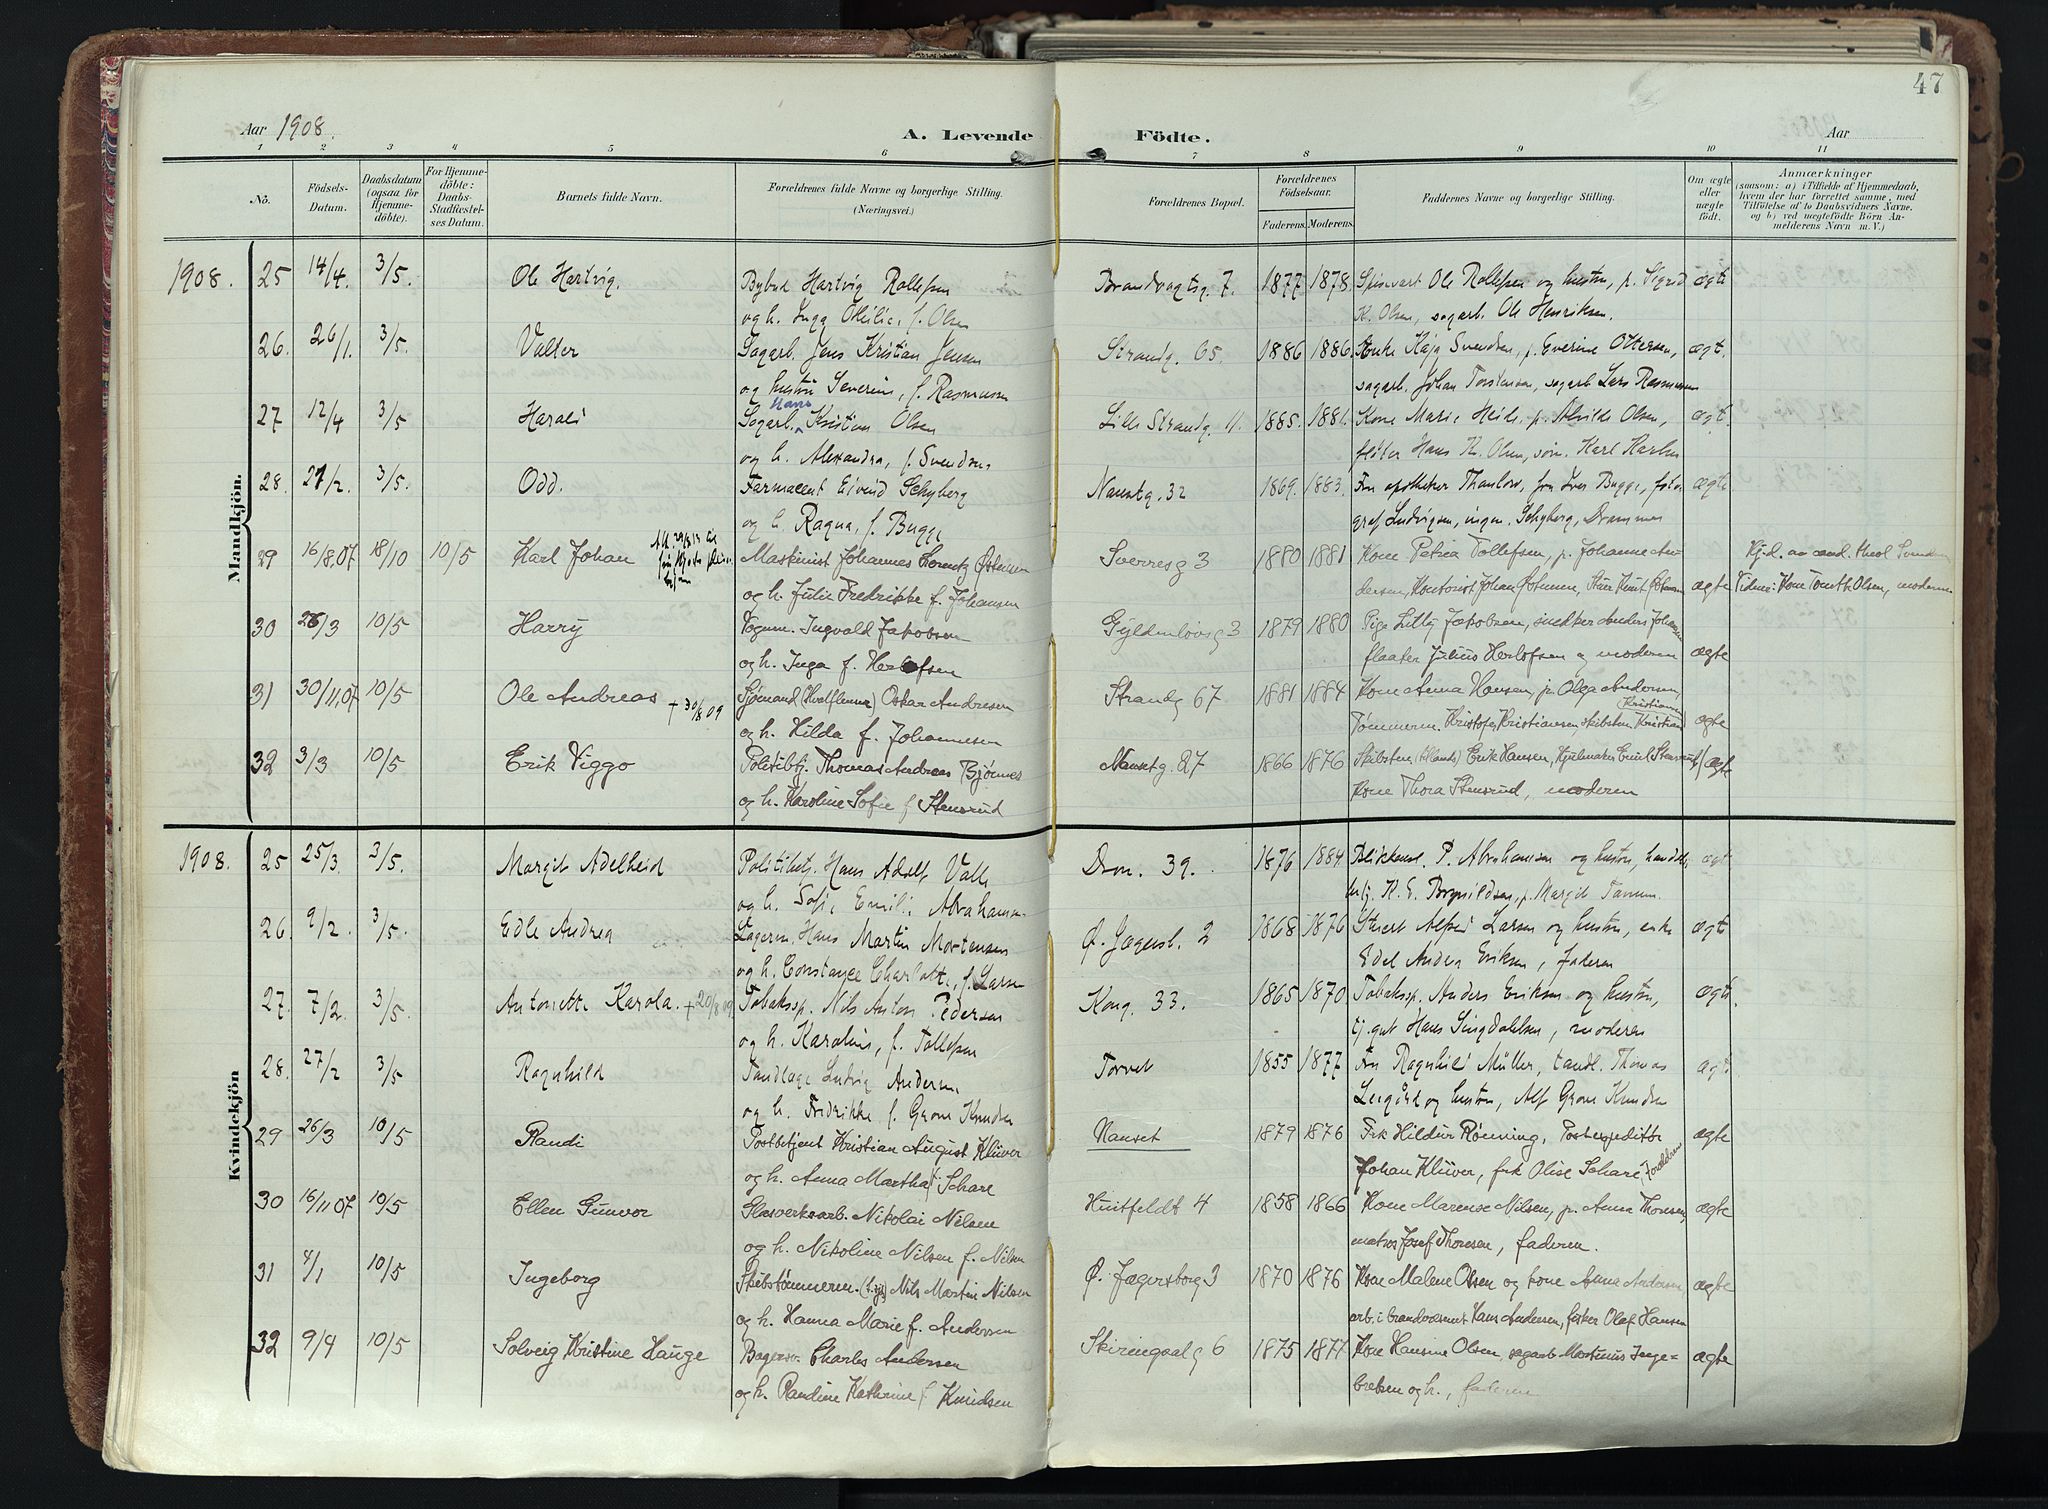 47
Aar 1908.
A. Levende Födte.
Aar
1 2 3 4 5 6 7 8 9 10 11
No.
Födsels-Datum.
Daabsdatum (ogsaa for Hjemmedöbte).
For Hjemmedöbte: Daabs-Stadfæstelses Datum.
Barnets fulde Navn.
Forældrenes fulde Navne og borgerlige Stilling.
(Næringsvei.)
Forældrenes Bopæl.
Forældrenes Födselsaar.
Faderens. Moderens.
Faddernes Navne og borgerlige Stilling.
Om ægte eller uægte födt.
Anmærkninger
(saasom: a) i Tilfælde af Hjemmedaab, hvem der har forrettet samme, med Tilföielse af to Daabsvidners Navne. og b) ved uægtefödte Börn Anmelderens Navn m. V.)
Mandkjön.
1908. 25 14/4 3/5. Ole Hartvig. Bybud Hartvig Rollefsen Brandvagtsg. 7. 1877 1878. Ole Rollefsen og hustru, p. Sigrid ægte
og h. Inga Otilie, f. Olsen K. Olsen, sagarb. Ole Henriksen.
26. 26/1. 3/5. Valter Sagarb. Jens Kristian Jensen Strandg. 65. 1886 1886. Enke Kaja Svendsen, p. Everine Ottersen, ægt.
og hustru Severine, f. Rasmussen sagarb. Johan Torstensen, sagarb Lars Rasmussen
27 12/4 3/5 Harald Sagarb. Hans Kristian Olsen Lille Strandg. 11. 1885. 1881. Kone Marie Heide, p. Alvilde Olsen, ægt.
og h. Alexandra, f. Svendsen fløter Hans K. Olsen, søm. Karl Karlsen
28. 27/2. 3/5. Odd. Farmaceut Eivind Schyberg Nansetg. 32 1869. 1883. Fru apotheker Thaulow, fru Iver Bugge, foto- ægte
og h. Ragna, f. Bugge graf Ludvigsen, ingen. Schyberg, Drammen
29 16/8.07 18/10 10/5 Karl Johan Maskinist Johannes Lorentz Østensen Sverresg 3 1880 1881 Kone Petrea Tollefsen, p. Johanne An- Hj.d. av cand. theol Svendsen
og h. Julie Fredrikke f. Johansen dersen, Kontorist Johan Østensen, Knut Østensen ægte Vidner: Kone Olsen, moderen
30 26/3 10/5 Harry Vognm. Ingvald Jakobsen Gyldenløvesg 3 1879 1880 Pige Lilly Jakobsen, snekker Anders Johansen
og h. Inga f. Herlofsen flaater Julius Herlofsen og moderen ægte
31 30/11.07 10/5 Ole Andreas + 30/8 09 Sjømand (Hvalfanger) Oskar Andresen Strandg 67 1881 1884 Kone Anna Hansen, p. Olga Andersen,
og h. Hilda f. Johannesen Tømmerm. Kristofer Kristiansen, skibstm. Kristian Kristiansen ægte
32 3/3 10/5 Erik Viggo Politibtj. Thomas Andreas Bjønnes Nansetg. 27 1866 1876 Skibstm. Erik Hansen, Hjulmaker Emil Stensrud, ægte
og h. Karoline Sofie f Stensrud kone Thora Stensrud, moderen
Kvindekjön
1908. 25 25/3 3/5. Margit Adelheid Politibetj. Hans Adolf Valle Dron. 39. 1876 1884. Blikkensl. P. Abrahamsen og hustru, handels- ægt
og h. Sofie Emilie Abrahamsen btj. K. E. p. Margit Tanum.
26. 9/2. 3/5. Edle Andrea Lagerm. Hans Martin Mortensen Ø. Jegersb. 2 1868 1876 Alfred Larsen og hustru, enke ægt
og h. Constance Charlotte, f. Larsen Edel Andrea Eriksen, faderen
27. 7/2. 3/5. Antonette Karola. + 20/8 09 Tobakssp. Nils Anton Pedersen Kong. 33. 1865 1870. Tobakssp. Anders Eriksen og hustru, ægte.
og h. Karoline, f. Tollefsen tj. gut Hans Lingdahlsen, moderen
28. 27/2 3/5 Ragnhild Tandlæge Ludvig Andersen Torvet 1855 1877 Fru Ragnhild Müller, tandl. Thomas ægt.
og h. Fredrikke f. Grove Knudsen og hustru, Alf Grove Knudsen
29 26/3 10/5 Randi Postbetjent Kristian August Klüver Nanset 1879 1876 Frk Hildur Rønning, Postexpeditør ægte
og h. Anna Martha f. Schare Johan Klüver, frk Olise Schare, forældrene
30 16/11.07 10/5 Ellen Gunvor Glasverksarb. Nikolai Nilsen Huitfeldt 4 1858 1866 Kone Marense Nilsen, p. Anna Thoresen, ægte
og h. Nikoline Nilsen f. Nilsen matros Josef Thoresen, faderen.
31 4/1 10/5 Ingeborg Skibstømmerm. Nils Martin Nilsen Ø. Jegersborg 3 1870 1876 Kone Malene Olsen og kone Anna Andersen, ægte
og h. Hanna Marie f. Andersen arb. i brandvæsenet Hans Andersen, fisker Olaf Hansen
32 9/4 10/5 Solveig Kristine Hauge Bagersv. Charles Andersen Skiringsalg 6 1875 1877 Kone Hansine Olsen, sagarb Martinus Inge- ægte
og h. Randine Kathrine f Knudsen bretsen og h., faderen